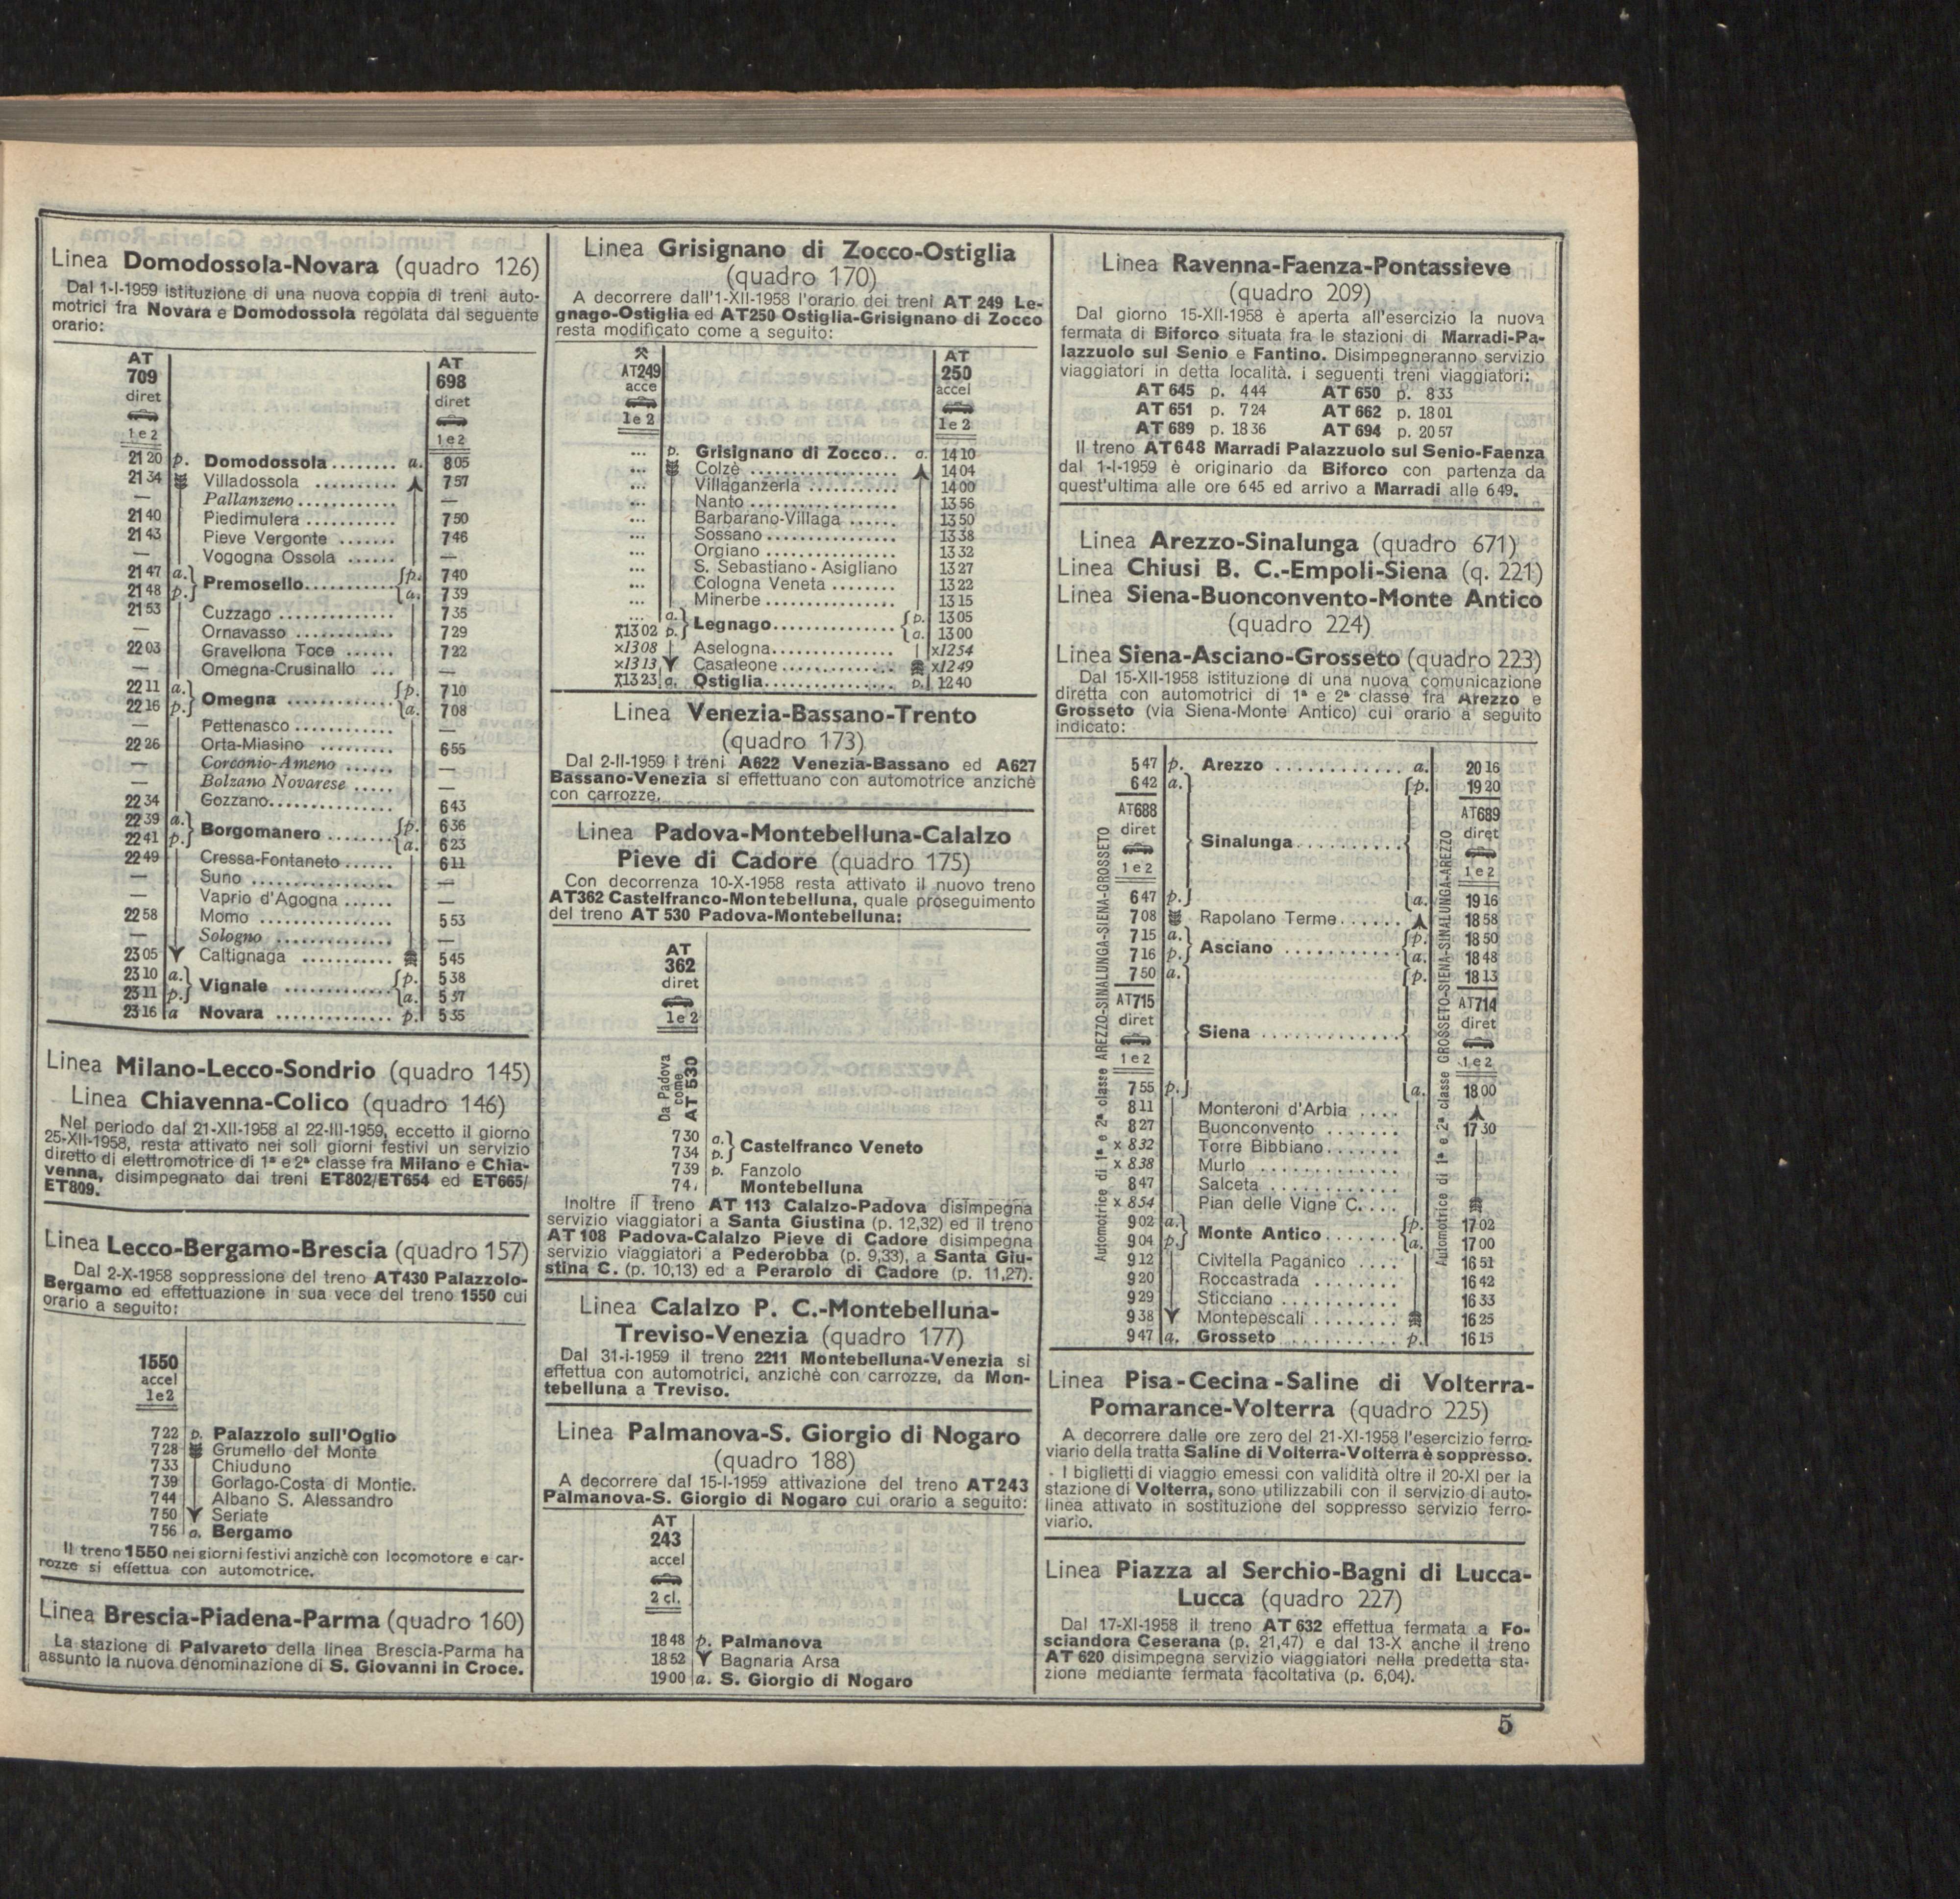 Linea Domodossola-Novara (quadro 126)
Dal 1-I-1959 istituzione di una nuova coppia di treni auto-
motrici fra Novara e Domodossola regolata dal seguente
orario:
AT AT
709 698
diret diret
1e2 1e2
21 20 p. Domodossola ........ a. 8 05
21 34 Villadossola .......... 7 57
— Pallanzeno ............ —
21 40 Piedimulera ........... 7 50
21 43 Pieve Vergonte ....... 7 46
— Vogogna Ossola ...... —
21 47 a. Premosello........... p. 7 40
21 48 p. a. 7 39
21 53 Cuzzago .............. 7 35
— Ornavasso ............ 7 29
22 03 Gravellona Toce ...... 7 22
— Omegna-Crusinallo ... —
22 11 a. Omegna ............. p. 7 10
22 16 p. a. 7 08
— Pettenasco ............ —
22 26 Orta-Miasino ......... 6 55
— Corconio-Ameno ...... —
— Bolzano Novarese ..... —
22 34 Gozzano............... 6 43
22 39 a. Borgomanero ........ p. 6 36
22 41 p. a. 6 23
22 49 Cressa-Fontaneto ...... 6 11
— Suno ................. —
— Vaprio d'Agogna ...... —
22 58 Momo ................ 5 53
— Sologno .............. —
23 05 Caltignaga ........... 5 45
23 10 a. Vignale .............. p. 5 38
23 11 p. a. 5 37
23 16 a Novara .............. p. 5 35
Linea Milano-Lecco-Sondrio (quadro 145)
Linea Chiavenna-Colico (quadro 146)
Nel periodo dal 21-XII-1958 al 22-III-1959, eccetto il giorno
25-XII-1958, resta attivato nei soli giorni festivi un servizio
diretto di elettromotrice di 1ª e 2ª classe fra Milano e Chia-
venna, disimpegnato dai treni ET802/ET654 ed ET665/
ET809.
Linea Lecco-Bergamo-Brescia (quadro 157)
Dal 2-X-1958 soppressione del treno AT430 Palazzolo-
Bergamo ed effettuazione in sua vece del treno 1550 cui
orario a seguito:
1550
accel
1e2
7 22 p. Palazzolo sull'Oglio
7 28 Grumello del Monte
7 33 Chiuduno
7 39 Gorlago-Costa di Montic.
7 44 Albano S. Alessandro
7 50 Seriate
7 56 a. Bergamo
Il treno 1550 nei giorni festivi anzichè con locomotore e car-
rozze si effettua con automotrice.
Linea Brescia-Piadena-Parma (quadro 160)
La stazione di Palvareto della linea Brescia-Parma ha
assunto la nuova denominazione di S. Giovanni in Croce.
Linea Grisignano di Zocco-Ostiglia
(quadro 170)
A decorrere dall'1-XII-1958 l'orario dei treni AT 249 Le-
gnago-Ostiglia ed AT250 Ostiglia-Grisignano di Zocco
resta modificato come a seguito:
AT249 AT
acce 250
accel
1e2 1e2
... p. Grisignano di Zocco.. a. 14 10
... Colzè .................. 14 04
... Villaganzerla ........... 14 00
... Nanto .................. 13 56
... Barbarano-Villaga ...... 13 50
... Sossano ................ 13 38
... Orgiano ................ 13 32
... S. Sebastiano - Asigliano 13 27
... Cologna Veneta ........ 13 22
... Minerbe ................ 13 15
... a. Legnago............... p. 13 05
13 02 p. a. 13 00
x13 08 Aselogna............... x12 54
x13 13 Casaleone.............. x12 49
13 23 a. Ostiglia................ p. 12 40
Linea Venezia-Bassano-Trento
(quadro 173)
Dal 2-II-1959 i treni A622 Venezia-Bassano ed A627
Bassano-Venezia si effettuano con automotrice anzichè
con carrozze.
Linea Padova-Montebelluna-Calalzo
Pieve di Cadore (quadro 175)
Con decorrenza 10-X-1958 resta attivato il nuovo treno
AT362 Castelfranco-Montebelluna, quale proseguimento
del treno AT 530 Padova-Montebelluna:
AT
362
diret
1e2
Da Padova
come
AT 530
7 30 a. Castelfranco Veneto
7 34 p.
7 39 p. Fanzolo
Montebelluna
Inoltre il treno AT 113 Calalzo-Padova disimpegna
servizio viaggiatori a Santa Giustina (p. 12,32) ed il treno
AT 108 Padova-Calalzo Pieve di Cadore disimpegna
servizio viaggiatori a Pederobba (p. 9,33), a Santa Giu-
stina C. (p. 10,13) ed a Perarolo di Cadore (p. 11,27).
Linea Calalzo P. C.-Montebelluna-
Treviso-Venezia (quadro 177)
Dal 31-i-1959 il treno 2211 Montebelluna-Venezia si
effettua con automotrici, anzichè con carrozze, da Mon-
tebelluna a Treviso.
Linea Palmanova-S. Giorgio di Nogaro
(quadro 188)
A decorrere dal 15-I-1959 attivazione del treno AT243
Palmanova-S. Giorgio di Nogaro cui orario a seguito:
AT
243
accel
2 cl.
18 48 p. Palmanova
18 52 Bagnaria Arsa
19 00 a. S. Giorgio di Nogaro
Linea Ravenna-Faenza-Pontassieve
(quadro 209)
Dal giorno 15-XII-1958 è aperta all'esercizio la nuova
fermata di Biforco situata fra le stazioni di Marradi-Pa-
lazzuolo sul Senio e Fantino. Disimpegneranno servizio
viaggiatori in detta località, i seguenti treni viaggiatori:
AT 645 p. 4 44 AT 650 p. 8 33
AT 651 p. 7 24 AT 662 p. 18 01
AT 689 p. 18 36 AT 694 p. 20 57
Il treno AT648 Marradi Palazzuolo sul Senio-Faenza
dal 1-I-1959 è originario da Biforco con partenza da
quest'ultima alle ore 6 45 ed arrivo a Marradi alle 6 49.
Linea Arezzo-Sinalunga (quadro 671)
Linea Chiusi B. C.-Empoli-Siena (q. 221)
Linea Siena-Buonconvento-Monte Antico
(quadro 224)
Linea Siena-Asciano-Grosseto (quadro 223)
Dal 15-XII-1958 istituzione di una nuova comunicazione
diretta con automotrici di 1ª e 2ª classe fra Arezzo e
Grosseto (via Siena-Monte Antico) cui orario a seguito
indicato:
Automotrice di 1ª e 2ª classe AREZZO-SINALUNGA-SIENA-GROSSETO
Automotrice di 1ª e 2ª classe GROSSETO-SIENA-SINALUNGA-AREZZO
5 47 p. Arezzo ............ a. 20 16
6 42 a. p. 19 20
AT688 AT689
diret Sinalunga.......... diret
1e2 1e2
6 47 p. a. 19 16
7 08 Rapolano Terme...... 18 58
7 15 a. Asciano ........... p. 18 50
7 16 p. a. 18 48
7 50 a. p. 18 13
AT715 AT714
diret Siena ............. diret
1e2 1e2
7 55 p. a. 18 00
8 11 Monteroni d'Arbia ....
8 27 Buonconvento ....... 17 30
x 8 32 Torre Bibbiano.......
x 8 38 Murlo .............
8 47 Salceta ............
x 8 54 Pian delle Vigne C....
9 02 a. Monte Antico....... p. 17 02
9 04 p. a. 17 00
9 12 Civitella Paganico .... 16 51
9 20 Roccastrada ........ 16 42
9 29 Sticciano ........... 16 33
9 38 Montepescali ........ 16 25
9 47 a. Grosseto .......... p. 16 15
Linea Pisa-Cecina-Saline di Volterra-
Pomarance-Volterra (quadro 225)
A decorrere dalle ore zero del 21-XI-1958 l'esercizio ferro-
viario della tratta Saline di Volterra-Volterra è soppresso.
I biglietti di viaggio emessi con validità oltre il 20-XI per la
stazione di Volterra, sono utilizzabili con il servizio di auto-
linea attivato in sostituzione del soppresso servizio ferro-
viario.
Linea Piazza al Serchio-Bagni di Lucca-
Lucca (quadro 227)
Dal 17-XI-1958 il treno AT 632 effettua fermata a Fo-
sciandora Ceserana (p. 21,47) e dal 13-X anche il treno
AT 620 disimpegna servizio viaggiatori nella predetta sta-
zione mediante fermata facoltativa (p. 6,04).
5